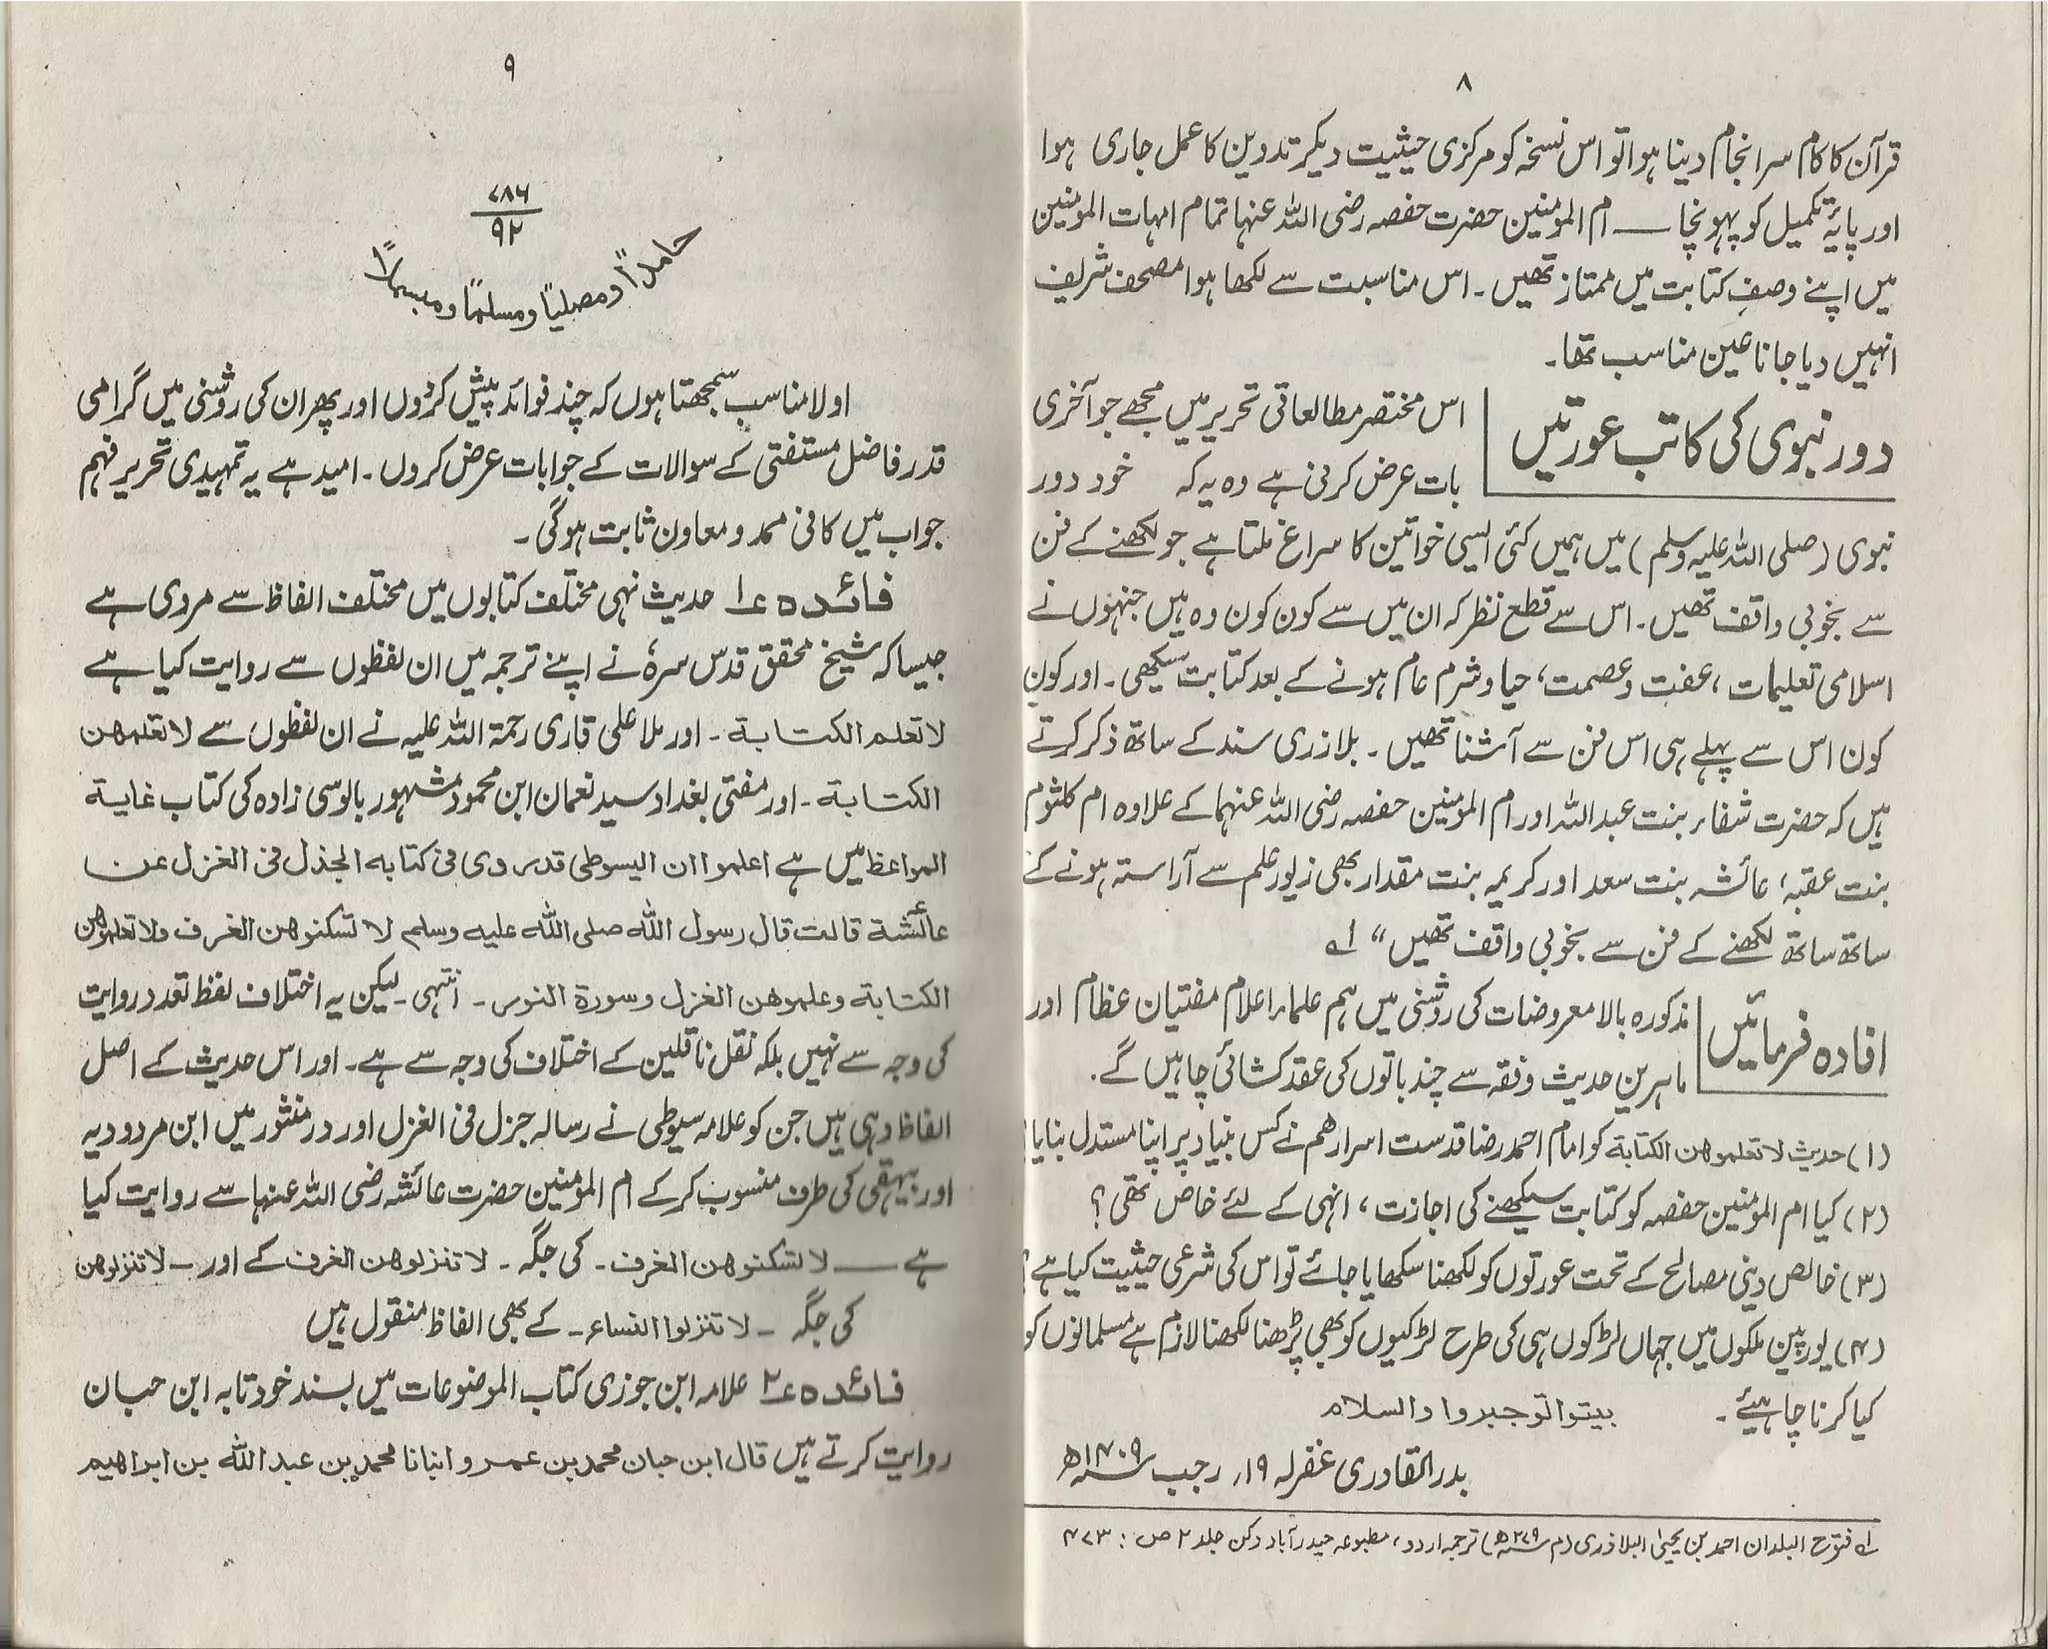 ۸
قرآن کا کام سر انجام دینا ہوا تو اس نسخہ کو مرکزی حیثیت دیکر تدوین کا عمل جاری ہوا
اور پایۂ تکمیل کو پہونچا ـــ ام المؤمنین حضرت حفصہ رضی اللہ عنہا تمام امہات المومنین
میں اپنے وصف کتابت میں ممتاز تھیں۔ اس مناسبت سے لکھا ہوا مصحف شریف
انہیں دیا جانا عین مناسب تھا۔
دور نبوی کی کاتب عورتیں
اس مختصر مطالعاتی تحریر میں مجھے جو آخری
بات عرض کرنی ہے وہ یہ کہ خود دور
نبوی (صلی اللہ علیہ وسلم) میں ہمیں کئی ایسی خواتین کا سراغ ملتا ہے جو لکھنے کے فن
سے بخوبی واقف تھیں۔ اس سے قطع نظر کہ ان میں سے کون کون وہ ہیں جنہوں نے
اسلامی تعلیمات، عفت و عصمت، حیا و شرم عام ہونے کے بعد کتابت سیکھی۔ اور کون
کون اس سے پہلے ہی اس فن سے آشنا تھیں۔ بلاذری سند کے ساتھ ذکر کرتے
ہیں کہ حضرت شفاء بنت عبداللہ اور ام المومنین حفصہ رضی اللہ عنہما کے علاوہ ام کلثوم
بنت عقبہ، عائشہ بنت سعد اور کریمہ بنت مقدار بھی زیور علم سے آراستہ ہونے کے
ساتھ ساتھ لکھنے کے فن سے بخوبی واقف تھیں“ ۱ے
افادہ فرمائیں
مذکورہ بالا معروضات کی روشنی میں ہم علماء اعلام مفتیان عظام اور
ماہرین حدیث و فقہ سے چند باتوں کی عقد کشائی چاہیں گے۔
(۱) حدیث لا تعلموھن الکتابة کو امام احمد رضا قدست اسرارھم نے کس بنیاد پر اپنا مستدل بنایا؟
(۲) کیا ام المؤمنین حفصہ کو کتابت سیکھنے کی اجازت، انہی کے لئے خاص تھی؟
(۳) خالص دینی مصالح کے تحت عورتوں کو لکھنا سکھایا جائے تو اس کی شرعی حیثیت کیا ہے؟
(۴) یورپین ملکوں میں جہاں لڑکوں ہی کی طرح لڑکیوں کو بھی پڑھنا لکھنا لازم ہے مسلمانوں کو
کیا کرنا چاہیئے۔ بینوا توجروا والسلام
بدر القادری غفرلہ ۱۹؍ رجب ۱۴۰۹ھ
۱ے فتوح البلدان احمد بن یحییٰ البلاذری (م ۲۷۹ھ) ترجمہ اردو، مطبوعہ حیدرآباد دکن جلد ۲ ص: ۴۷۳
۹
۷۸۶
۹۲
حامداً ومصلیاً ومسلماً ومبسملاً
اولا مناسب سمجھتا ہوں کہ چند فوائد پیش کردوں اور پھر ان کی روشنی میں گرامی
قدر فاضل مستفتی کے سوالات کے جوابات عرض کروں۔ امید ہے یہ تمہیدی تحریر فہم
جواب میں کافی ممد و معاون ثابت ہوگی۔
فائدہ ۱ حدیث نہی مختلف کتابوں میں مختلف الفاظ سے مروی ہے
جیسا کہ شیخ محقق قدس سرہٗ نے اپنے ترجمہ میں ان لفظوں سے روایت کیا ہے
لا تعلم الکتابة۔ اور ملا علی قاری رحمۃ اللہ علیہ نے ان لفظوں سے لا تعلمھن
الکتابة۔ اور مفتی بغداد سید نعمان ابن محمود مشہور بالوسی زادہ کی کتاب غایة
المواعظ میں ہے اعلموا ان السیوطی قد روی فی کتابه الجذل فی الغزل عن
عائشة قالت قال رسول اللہ صلی اللہ علیه وسلم لا تسکنوھن الغرف ولا تعلموھن
الکتابة وعلموھن الغزل وسورة النور۔ انتہی۔ لیکن یہ اختلاف لفظ تعدد روایت
کی وجہ سے نہیں بلکہ نقل ناقلین کے اختلاف کی وجہ سے ہے۔ اور اس حدیث کے اصل
الفاظ وہی ہیں جن کو علامہ سیوطی نے رسالہ جزل فی الغزل اور در منثور میں ابن مردودیہ
اور بیہقی کی طرف منسوب کرکے ام المؤمنین حضرت عائشہ رضی اللہ عنہا سے روایت کیا
ہے ـــ لا تسکنوھن الغرف۔ کی جگہ۔ لا تنزلوھن الغرف کے اور ـ لا تنزلوھن
کی جگہ ـ لا تنزلوا النساء۔ کے بھی الفاظ منقول ہیں
فائدہ ۲ علامہ ابن جوزی کتاب الموضوعات میں بسند خود تا بہ ابن حبان
روایت کرتے ہیں قال ابن حبان محمد بن عمرو انبانا محمد بن عبداللہ بن ابراھیم